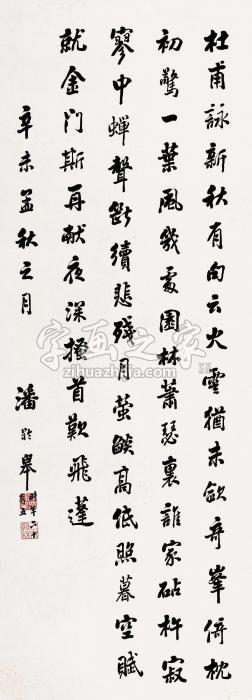 杜甫詠新秋有句云火雲猶未斂奇峯倚枕
初驚一葉風幾處園林蕭瑟裏誰家砧杵寂
寥中蟬聲斷續悲殘月螢燄高低照暮空賦
就金門期再献夜深搔首歎飛蓬
辛未孟秋之月 潘齡皋
字画之家
zihuazhijia.com